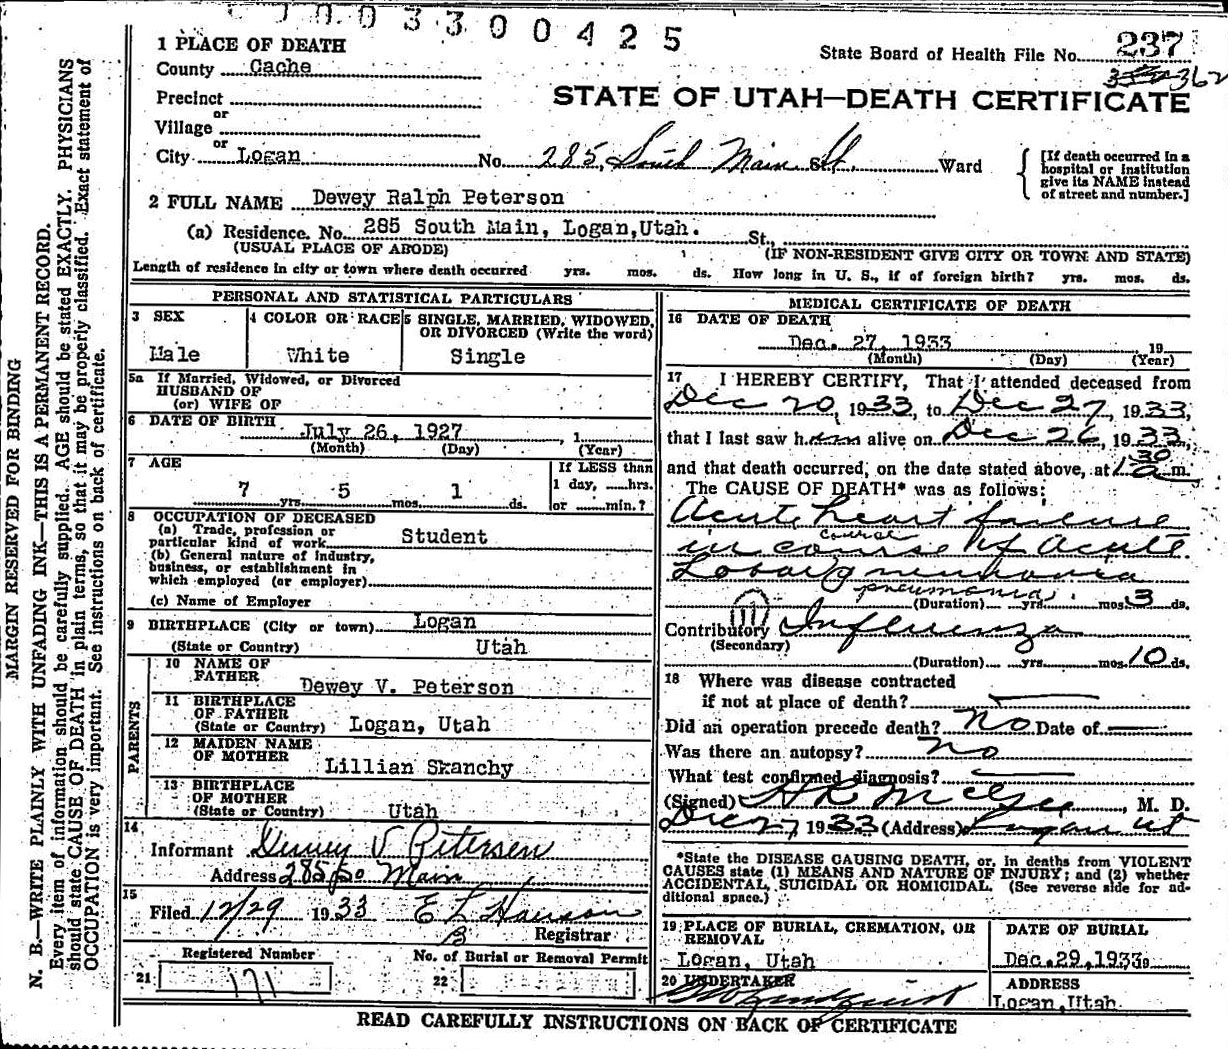 1003300425
1 PLACE OF DEATH
State Board of Health File No. 237
362
County Cache
STATE OF UTAH—DEATH CERTIFICATE
Precinct
or
Village
or
City Logan No. 285 South Main St. Ward
[If death occurred in a hospital or institution give its NAME instead of street and number.]
2 FULL NAME Dewey Ralph Peterson
(a) Residence. No. 285 South Main, Logan, Utah. St.,
(USUAL PLACE OF ABODE) (IF NON-RESIDENT GIVE CITY OR TOWN AND STATE)
Length of residence in city or town where death occurred yrs. mos. ds. How long in U. S., if of foreign birth? yrs. mos. ds.
PERSONAL AND STATISTICAL PARTICULARS
3 SEX
4 COLOR OR RACE
5 SINGLE, MARRIED, WIDOWED, OR DIVORCED (Write the word)
Male White Single
5a If Married, Widowed, or Divorced
HUSBAND OF
(or) WIFE OF
6 DATE OF BIRTH
July 26, 1927, 1
(Month) (Day) (Year)
7 AGE
If LESS than
1 day, ......hrs.
or ......min.?
7 yrs. 5 mos. 1 ds.
8 OCCUPATION OF DECEASED
(a) Trade, profession or
particular kind of work Student
(b) General nature of industry,
business, or establishment in
which employed (or employer)
(c) Name of Employer
9 BIRTHPLACE (City or town) Logan
(State or Country) Utah
PARENTS
10 NAME OF
FATHER Dewey V. Peterson
11 BIRTHPLACE
OF FATHER
(State or Country) Logan, Utah
12 MAIDEN NAME
OF MOTHER Lillian Skanchy
13 BIRTHPLACE
OF MOTHER
(State or Country) Utah
14
Informant Dewey V Petersen
Address 285 So Main
15
Filed 12/29 1933 E L Hanson
Registrar
Registered Number No. of Burial or Removal Permit
21 171 22
MEDICAL CERTIFICATE OF DEATH
16 DATE OF DEATH
Dec. 27, 1933 19
(Month) (Day) (Year)
17 I HEREBY CERTIFY, That I attended deceased from
Dec 20, 1933, to Dec 27, 1933,
that I last saw him alive on Dec 26, 1933,
and that death occurred, on the date stated above, at 1 30 a m.
The CAUSE OF DEATH* was as follows:
Acute heart failure
course
in course of Acute
Lobar pneumonia
pneumonia
(Duration) yrs. mos. 3 ds.
(11)
Contributory Influenza
(Secondary)
(Duration) yrs. mos. 10 ds.
18 Where was disease contracted
if not at place of death?
Did an operation precede death? No Date of
Was there an autopsy? no
What test confirmed diagnosis?
(Signed) H R McGee, M. D.
Dec 27, 1933 (Address) Logan Ut
*State the DISEASE CAUSING DEATH, or, in deaths from VIOLENT
CAUSES state (1) MEANS AND NATURE OF INJURY; and (2) whether
ACCIDENTAL, SUICIDAL OR HOMICIDAL. (See reverse side for ad-
ditional space.)
19 PLACE OF BURIAL, CREMATION, OR REMOVAL
DATE OF BURIAL
Logan, Utah Dec. 29, 1933
20 UNDERTAKER
ADDRESS
Logan, Utah.
READ CAREFULLY INSTRUCTIONS ON BACK OF CERTIFICATE
MARGIN RESERVED FOR BINDING
N. B.—WRITE PLAINLY WITH UNFADING INK—THIS IS A PERMANENT RECORD.
Every item of information should be carefully supplied. AGE should be stated EXACTLY. PHYSICIANS
should state CAUSE OF DEATH in plain terms, so that it may be properly classified. Exact statement of
OCCUPATION is very important. See instructions on back of certificate.